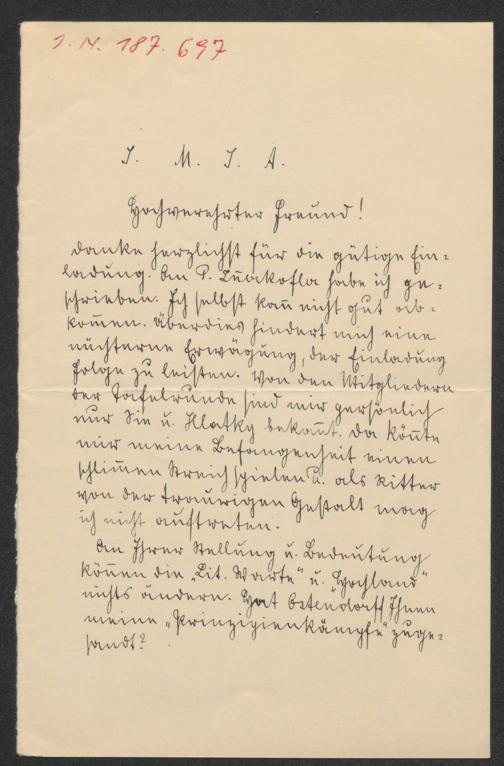 I. N. 187.697
J. M. J. A.
Hochverehrter Freund!
Danke herzlichst für die gütige Ein=
ladung. An P. habe ich ge=
schrieben. Ich selbst kan̄ nicht gut ab=
kom̄en. Überdies hindert mich eine
nüchterne Erwägung, der Einladung
Folge zu leisten. Von den Mitgliedern
der Tafelrunde sind mir persönlich
nur Sie u. Hlatky bekan̄t. Da kön̄te
mir meine Befangenheit einen
schlim̄en Streich spielen u. als Ritter
von der traurigen Gestalt mag
ich nicht auftreten.
An Ihrer Stellung u. Bedeutung
kön̄en die „Lit. Warte" u. „Hochland"
nichts ändern. Hat Ostendorff Ihnen
meine „Prinzipienkämpfe" zuge=
sandt?